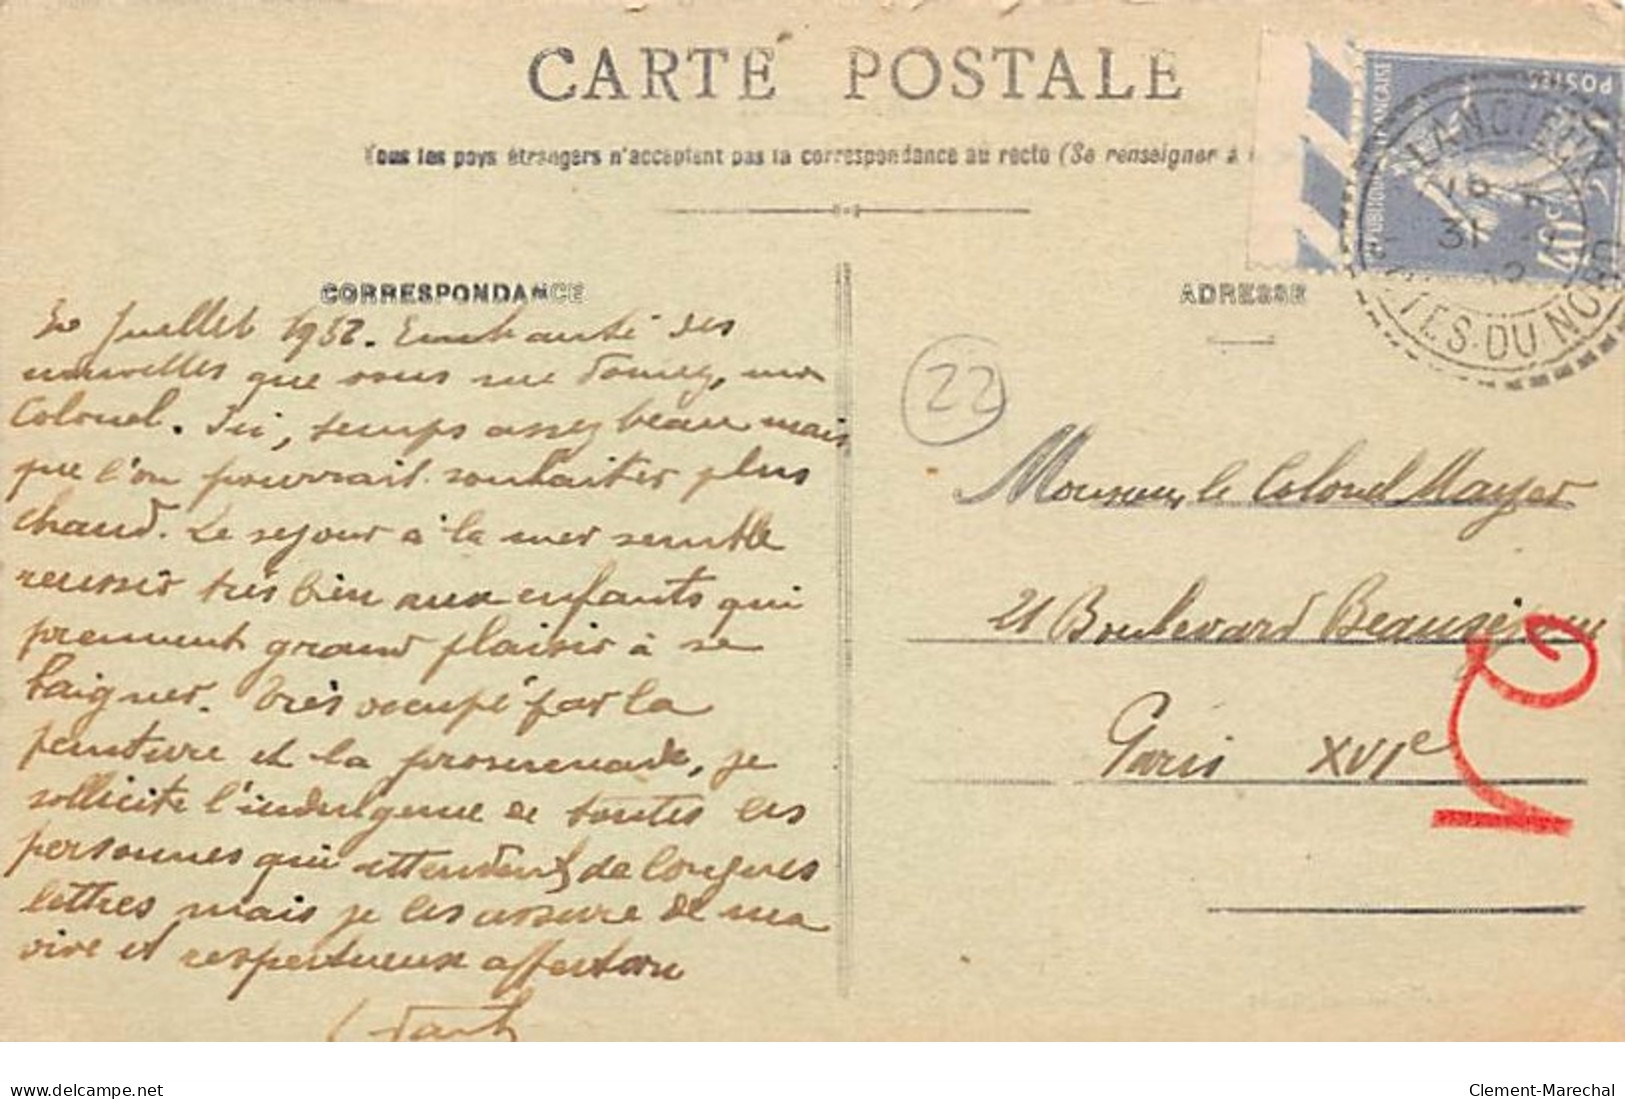 CARTE POSTALE
Tous les pays étrangers n'acceptent pas la correspondance au recto (Se renseigner à
CORRESPONDANCE
30 Juillet 1932. Enchanté des
nouvelles que vous me donnez, mon
Colonel. Ici, temps assez beau mais
que l'on pourrait souhaiter plus
chaud. Le séjour à la mer semble
reussir très bien aux enfants qui
prennent grand plaisir à se
baigner. Très occupé par la
peinture et la promenade, je
sollicite l'indulgence de toutes les
personnes qui attendent de longues
lettres mais je les assure de ma
vive et respectueuse affection
ADRESSE
22
Monsieur le Colonel Mayer
21 Boulevard Beauséjour
Paris XVIe
POSTES
REPUBLIQUE FRANÇAISE
40c
LANCIEUX
31
COTES-DU-NORD
www.delcampe.net
Clement-Marechal